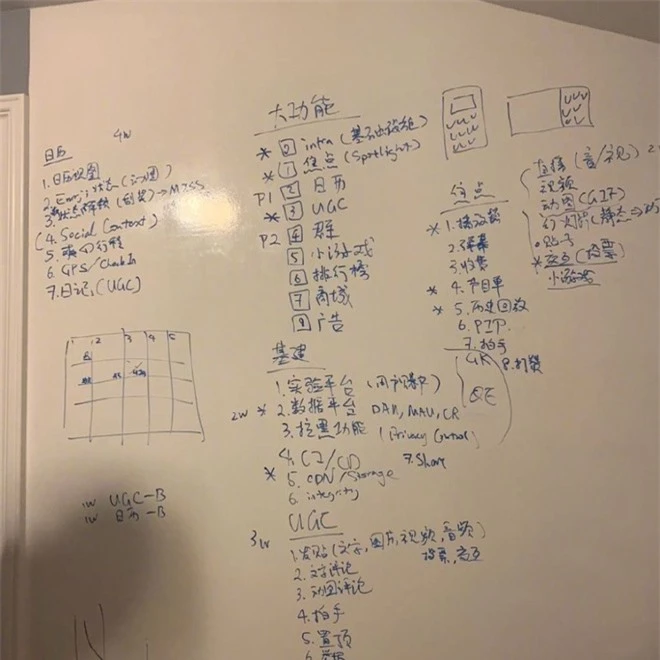 大功能
* 0 infra (基础设施)
* 1 焦点 (Spotlight)
P1 2 日历
* 3 UGC
P2 4 群
5 小游戏
6 排行榜
7 商城
9 广告
日历 4w
1. 日历视图
2. Emoji状态 (动图)
(4. Social Context)
行程
6. GPS/Check In
7. 日记, (UGC)
1 2 3 4 5
1w UGC-B
1w 日历-B
焦点
* 1. 播放器
2. 弹幕
3. 收费
* 4. 节目单
* 5. 历史回放
6. PIP.
7. 拍手
8. 打赏
直播 (音/视)
视频
动图 (GIF)
幻灯片 (静态=>
贴子
* 交互 (投票)
小游戏
基建
1. 实验平台
2w * 2. 数据平台 DAU, MAU, CR
3. 拉黑功能 (Privacy Control)
4. CI/CD
7. Share
* 5. CDN/Storage
6. integrity
QE
UGC
3w
1. 发贴 (文字, 图片, 视频, 音频)
投票, 交互
2. 文字评论
3. 动图评论
4. 拍手
5. 置顶
6. 举报